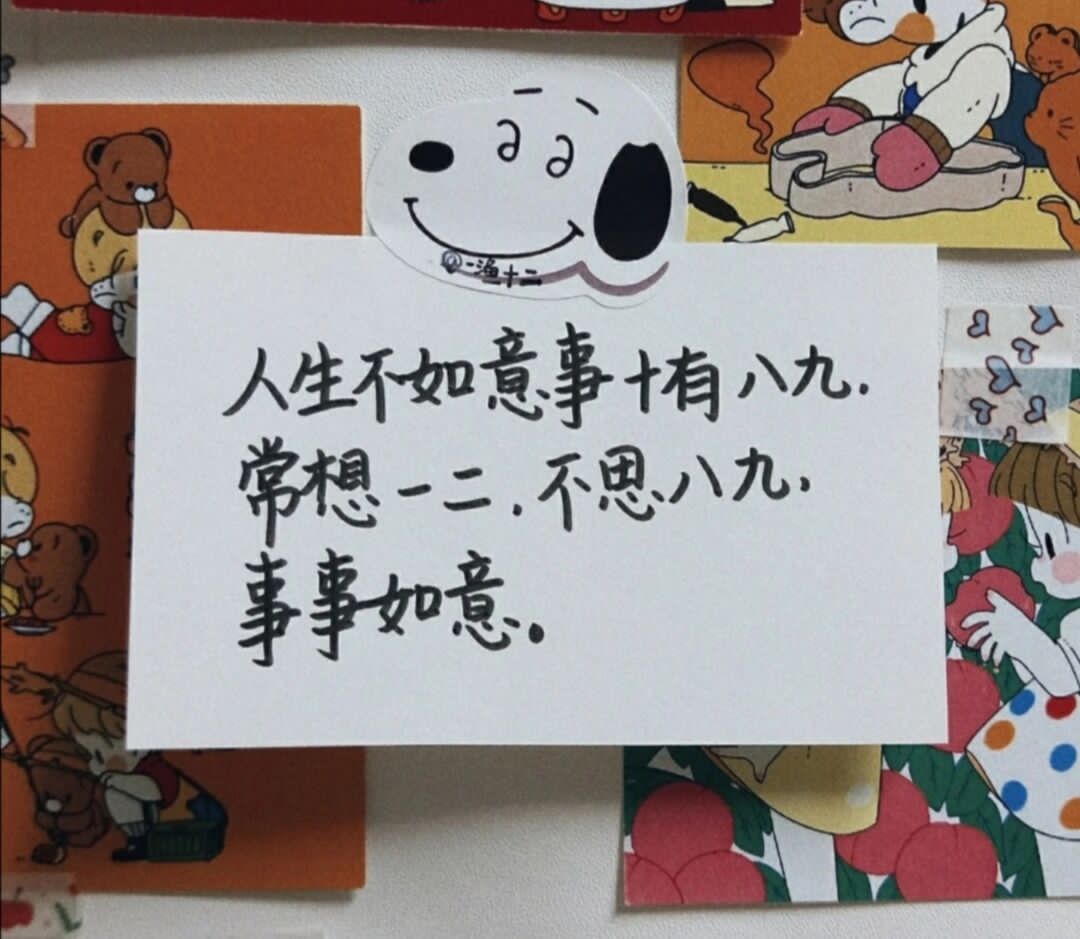 @一渔十二
人生不如意事十有八九.
常想一二.不思八九,
事事如意。